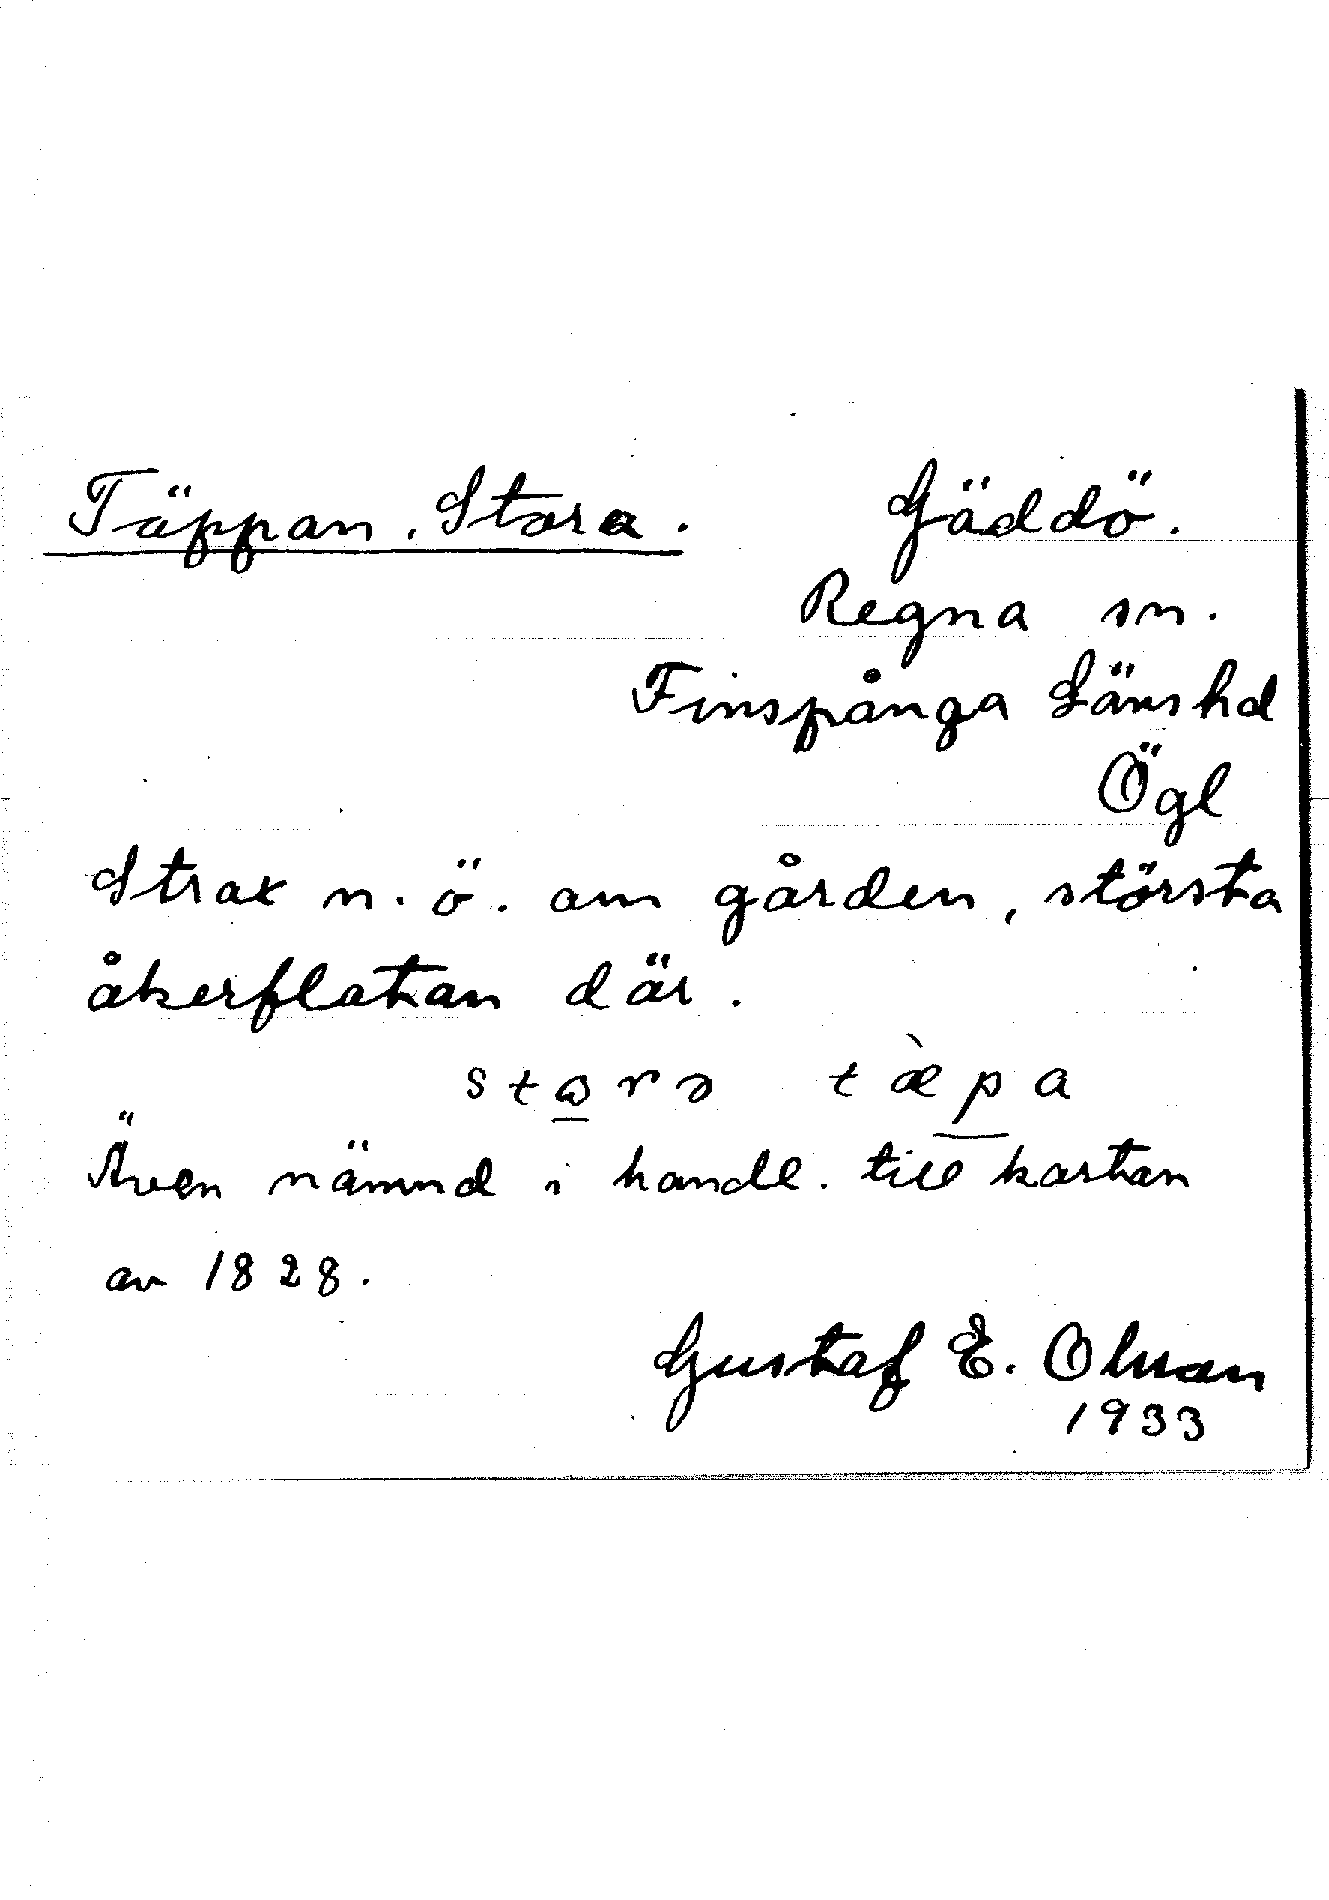 Täppan, Stora. Gäddö.
Regna sn.
Finspånga Länshd
Ögl
Strax n.ö. om gården, största
åkerflatan där.
storə tæ̀pa
Även nämnd i handl. till kartan
av 1828.
Gustaf E. Olsson
1933